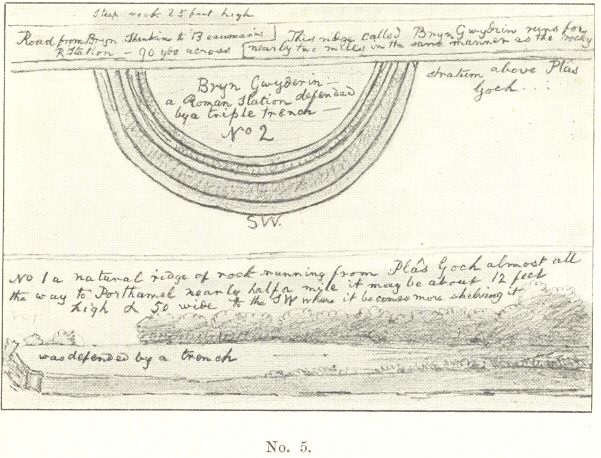 Steep rock 25 feet high
Road from Bryn Shenkin to Beaumaris
R Station – 90 yds across
This ridge called Bryn Gwydrin runs for
nearly two miles in the same manner as the rocky
stratum above Plâs
Goch...
Bryn Gwyderin –
a Roman Station defended
by a triple trench –
No 2
SW.
No 1 a natural ridge of rock running from Plâs Goch almost all
the way to Porthamel nearly half a mile it may be about 12 feet
high & 50 wide to the SW where it becomes more shelving it
was defended by a trench
No. 5.